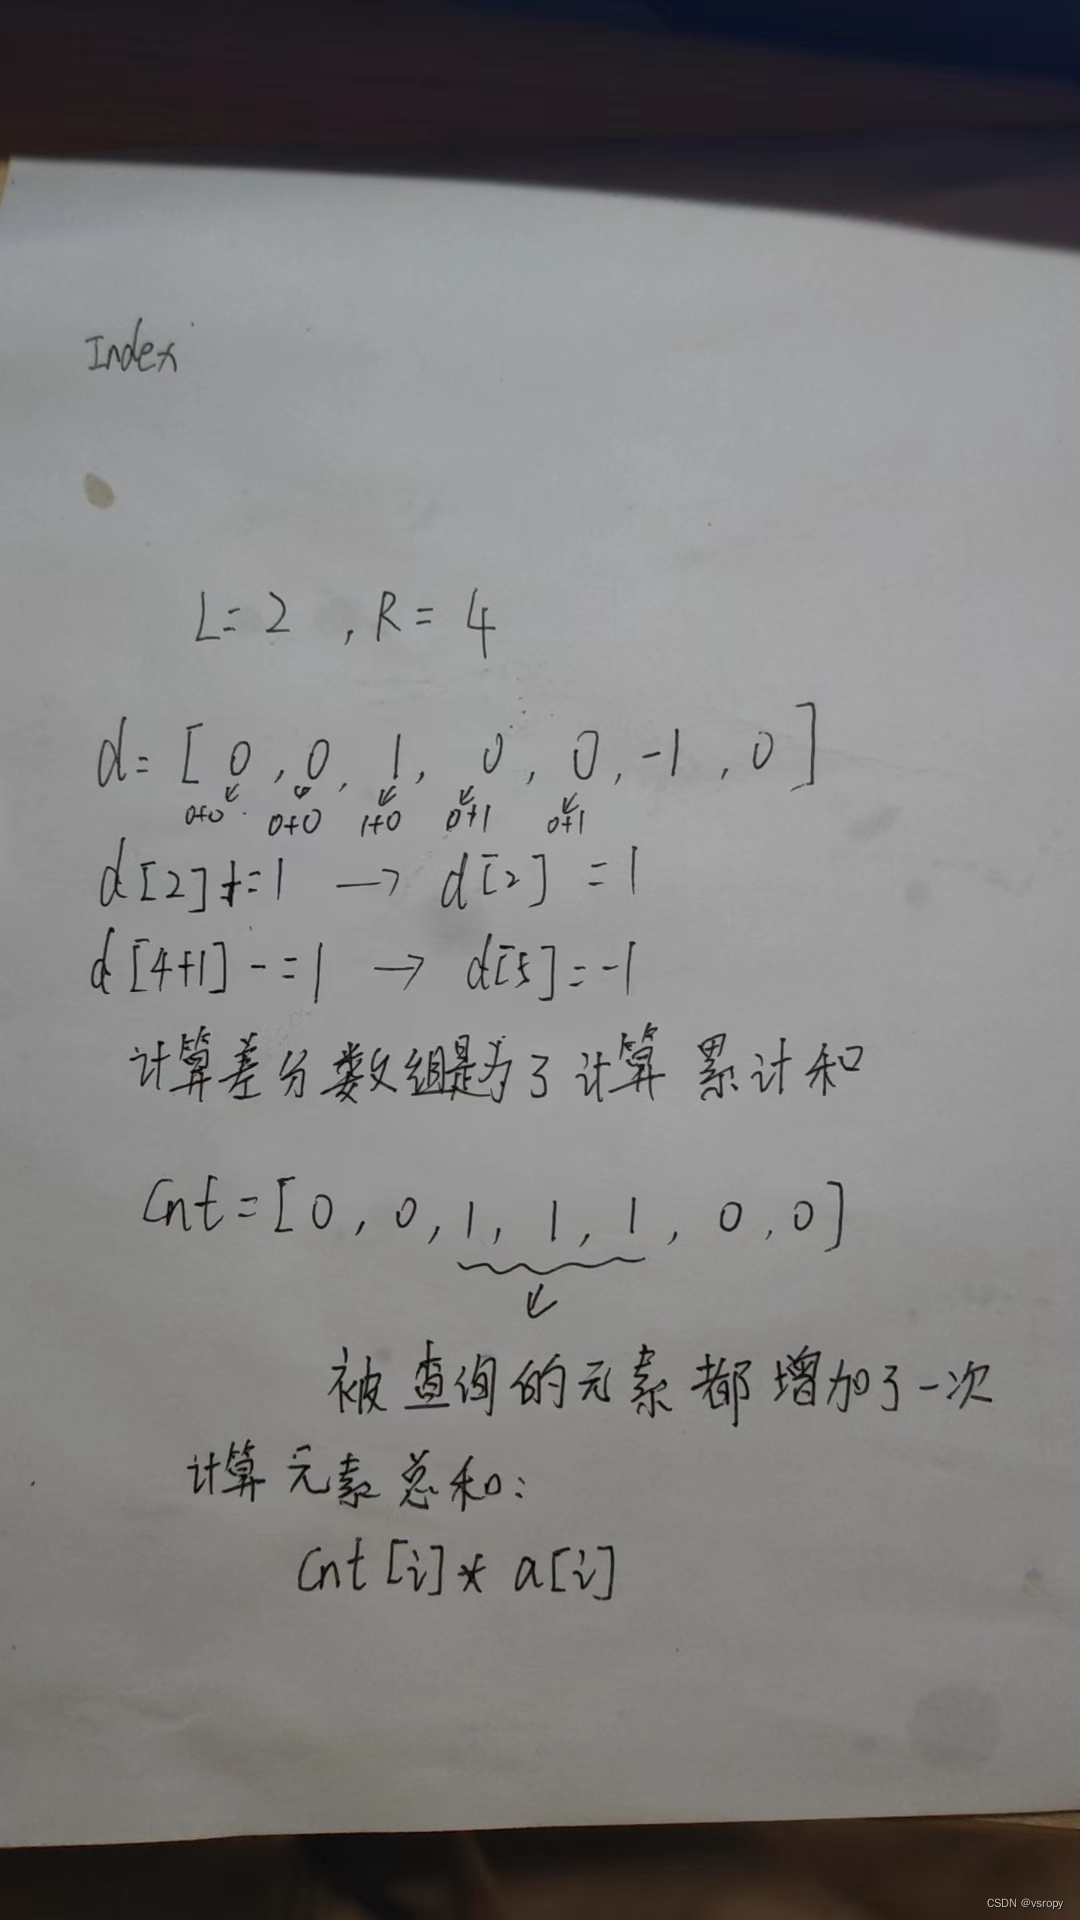 Index
L=2 , R=4
d=[0,0,1,0,0,-1,0]
0+0 0+0 1+0 0+1 0+1
d[2]+=1 → d[2]=1
d[4+1]-=1 → d[5]=-1
计算差分数组是为了计算累计和
Cnt=[0,0,1,1,1,0,0]
被查询的元素都增加了一次
计算元素总和:
Cnt[i]* a[i]
CSDN @vsropy